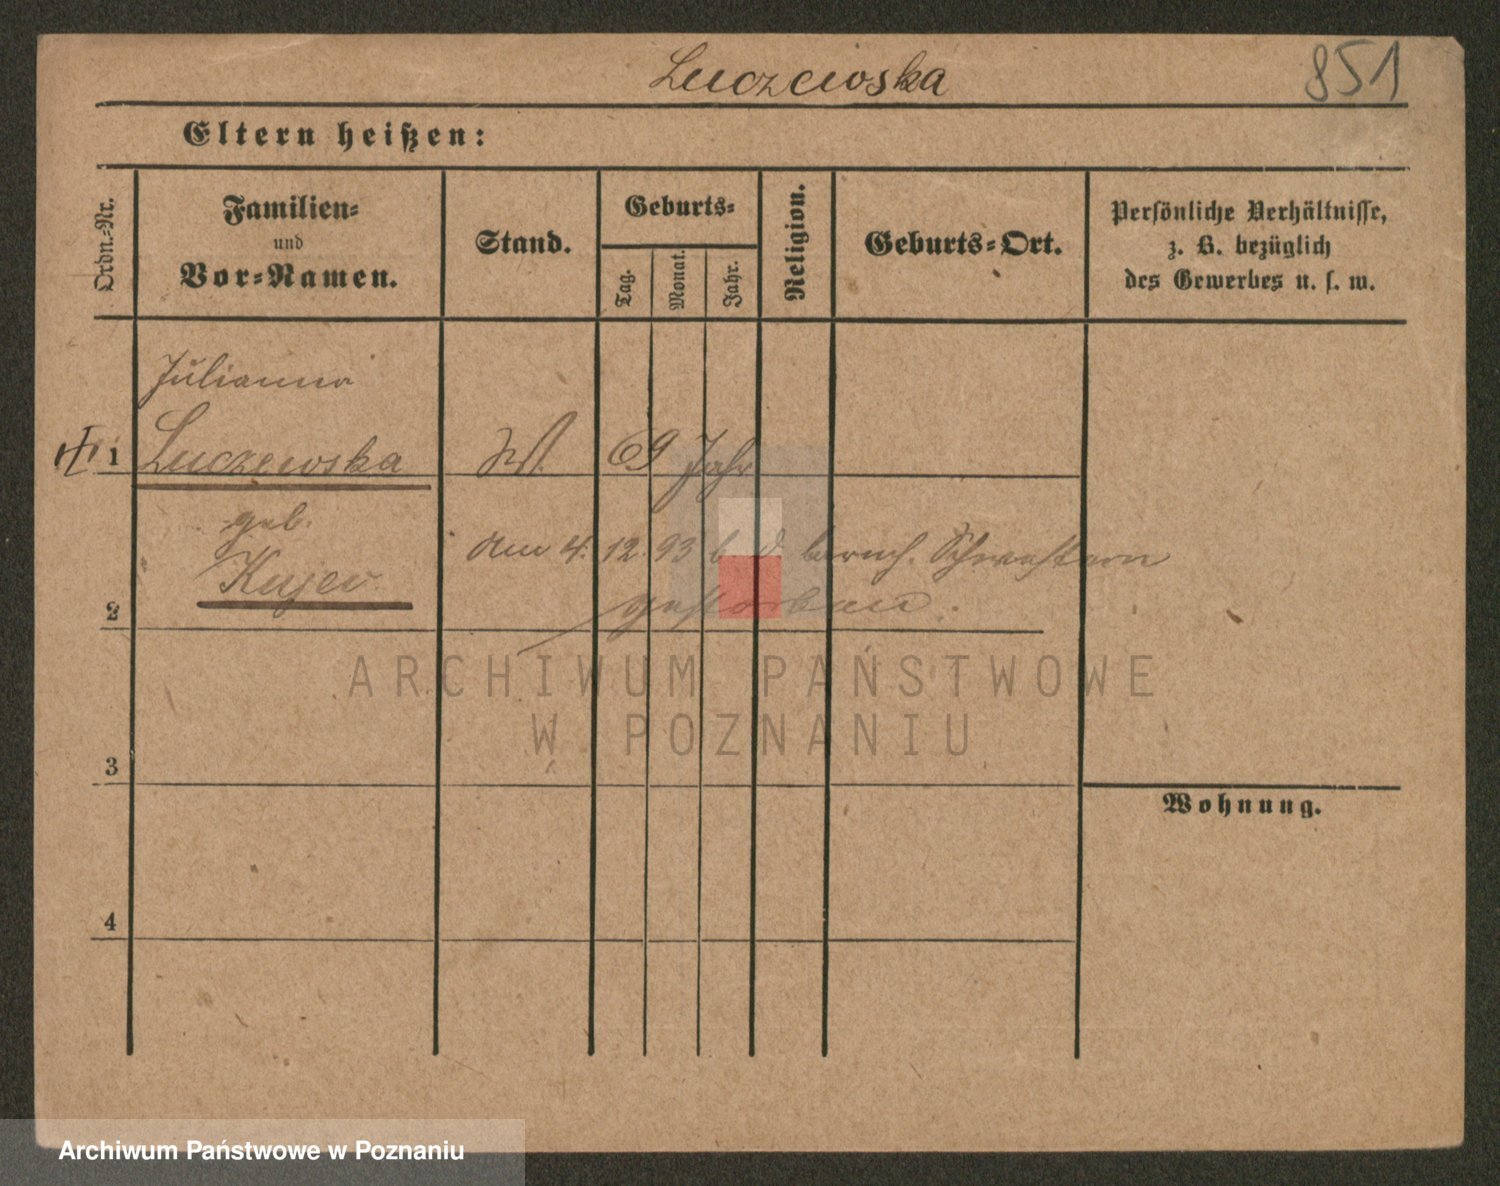 Luczewska 851
Eltern heißen:
Ordn.-Nr.
Familien-
und
Vor-Namen.
Stand.
Geburts-
Tag.
Monat.
Jahr.
Religion.
Geburts-Ort.
Persönliche Verhältnisse,
z. B. bezüglich
des Gewerbes u. s. w.
Julianna
1 Luczewska W. 69 Jahr
geb.
Kujew
am 4. 12. 93 b. d. barmh. Schwestern
2 gestorben.
ARCHIWUM PAŃSTWOWE
W POZNANIU
3
Wohnung.
4
Archiwum Państwowe w Poznaniu